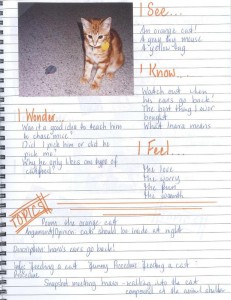 I See...
An orange cat!
A grey toy mouse
A yellow tag
I Know...
Watch out when
his ears go back!
The best thing I ever
bought.
What hana means
I Wonder...
Was it a good idea to teach him
to chase mice?
Did I pick him or did he
pick me?
Why he only likes one type of
catfood?
I Feel...
The love
The worry
The fun
The warmth
TOPICS
Poem: the orange cat
Argument/Opinion: cats should be inside at night
Description: hana's ears go back!
feeding a cat
Procedure
Snapshot: meeting hana - walking into the cat
compound at the animal shelter